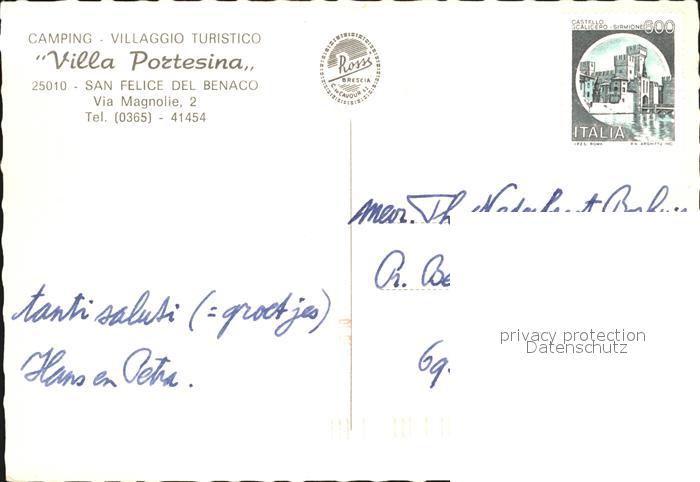 CAMPING - VILLAGGIO TURISTICO
"Villa Portesina„
25010 - SAN FELICE DEL BENACO
Via Magnolie, 2
Tel. (0365) - 41454
Rossi
BRESCIA
C. so CAVOUR 42
CASTELLO
SCALIGERO - SIRMIONE
600
ITALIA
I.P.Z.S. ROMA
mevr. Th.
tanti saluti (= groetjes)
Hans en Petra.
privacy protection
Datenschutz